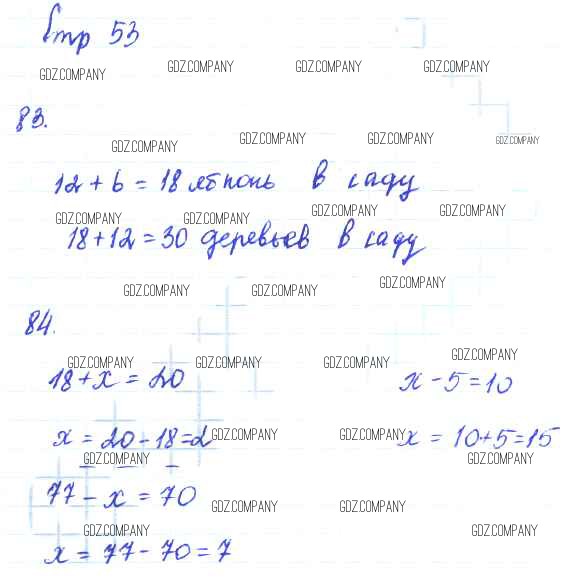 Стр 53
GDZ.COMPANY GDZ.COMPANY GDZ.COMPANY GDZ.COMPANY
83.
GDZ.COMPANY GDZ.COMPANY GDZ.COMPANY GDZ.COMPANY
12 + 6 = 18 яблонь в саду
GDZ.COMPANY GDZ.COMPANY GDZ.COMPANY GDZ.COMPANY
18 + 12 = 30 деревьев в саду
GDZ.COMPANY GDZ.COMPANY GDZ.COMPANY
84.
GDZ.COMPANY GDZ.COMPANY GDZ.COMPANY GDZ.COMPANY
18 + х = 20 х - 5 = 10
х = 20 - 18 = 2 GDZ.COMPANY GDZ.COMPANY х = 10 + 5 = 15
GDZ.COMPANY GDZ.COMPANY
77 - х = 70 GDZ.COMPANY GDZ.COMPANY
GDZ.COMPANY GDZ.COMPANY
х = 77 - 70 = 7